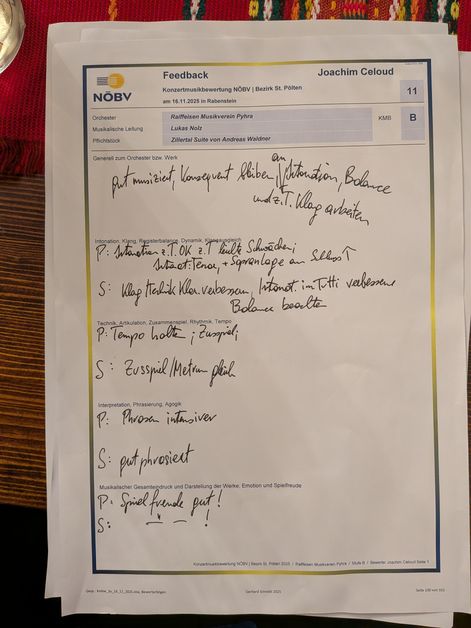 NÖBV
Feedback
Joachim Celoud
Konzertmusikbewertung NÖBV | Bezirk St. Pölten
am 16.11.2025 in Rabenstein
11
Orchester
Raiffeisen Musikverein Pyhra
KMB
B
Musikalische Leitung
Lukas Nolz
Pflichtstück
Zillertal Suite von Andreas Waldner
Generell zum Orchester bzw. Werk
an
gut musiziert, Konsequent bleiben, Intonation, Balance
und z.T. Klang arbeiten
Intonation, Klang, Registerbalance, Dynamik, Klangausgleich
P: Intonation z.T. OK z.T leichte Schwächen;
Intonat. Tenor + Sopranlage am Schluss ↑
S: Klang verbessern, Intonat. im Tutti verbessern
Balance beachten
Technik, Artikulation, Zusammenspiel, Rhythmik, Tempo
P: Tempo halten; Zusspiel;
S: Zusspiel/Metrum gleich
Interpretation, Phrasierung, Agogik
P: Phrasen intensiver
S: gut phrasiert
Musikalischer Gesamteindruck und Darstellung der Werke; Emotion und Spielfreude
P: Spielfreude gut!
S: — " — !
Konzertmusikbewertung NÖBV | Bezirk St. Pölten 2025 / Raiffeisen Musikverein Pyhra / Stufe B / Bewerter Joachim Celoud Seite 1
Gerhard Schnabl 2025